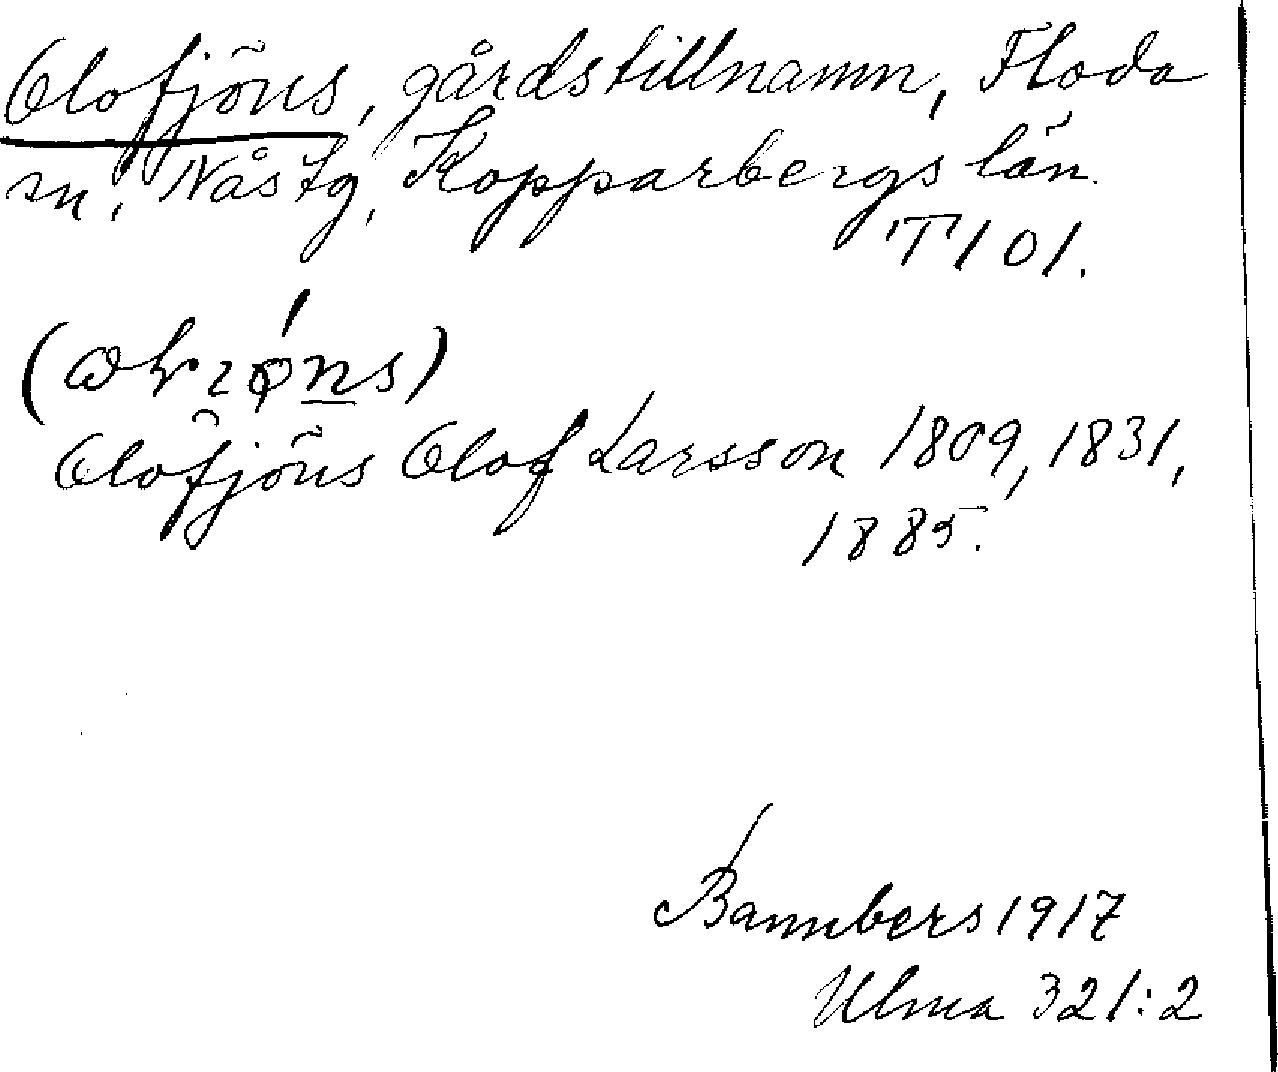 Olofjöns, gårdstillnamn, Floda
sn, Nås tg, Kopparbergs län.
T101.
Olofjöns Olof Larsson 1809, 1831,
1885.
Bannbers 1917
Ulma 321:2